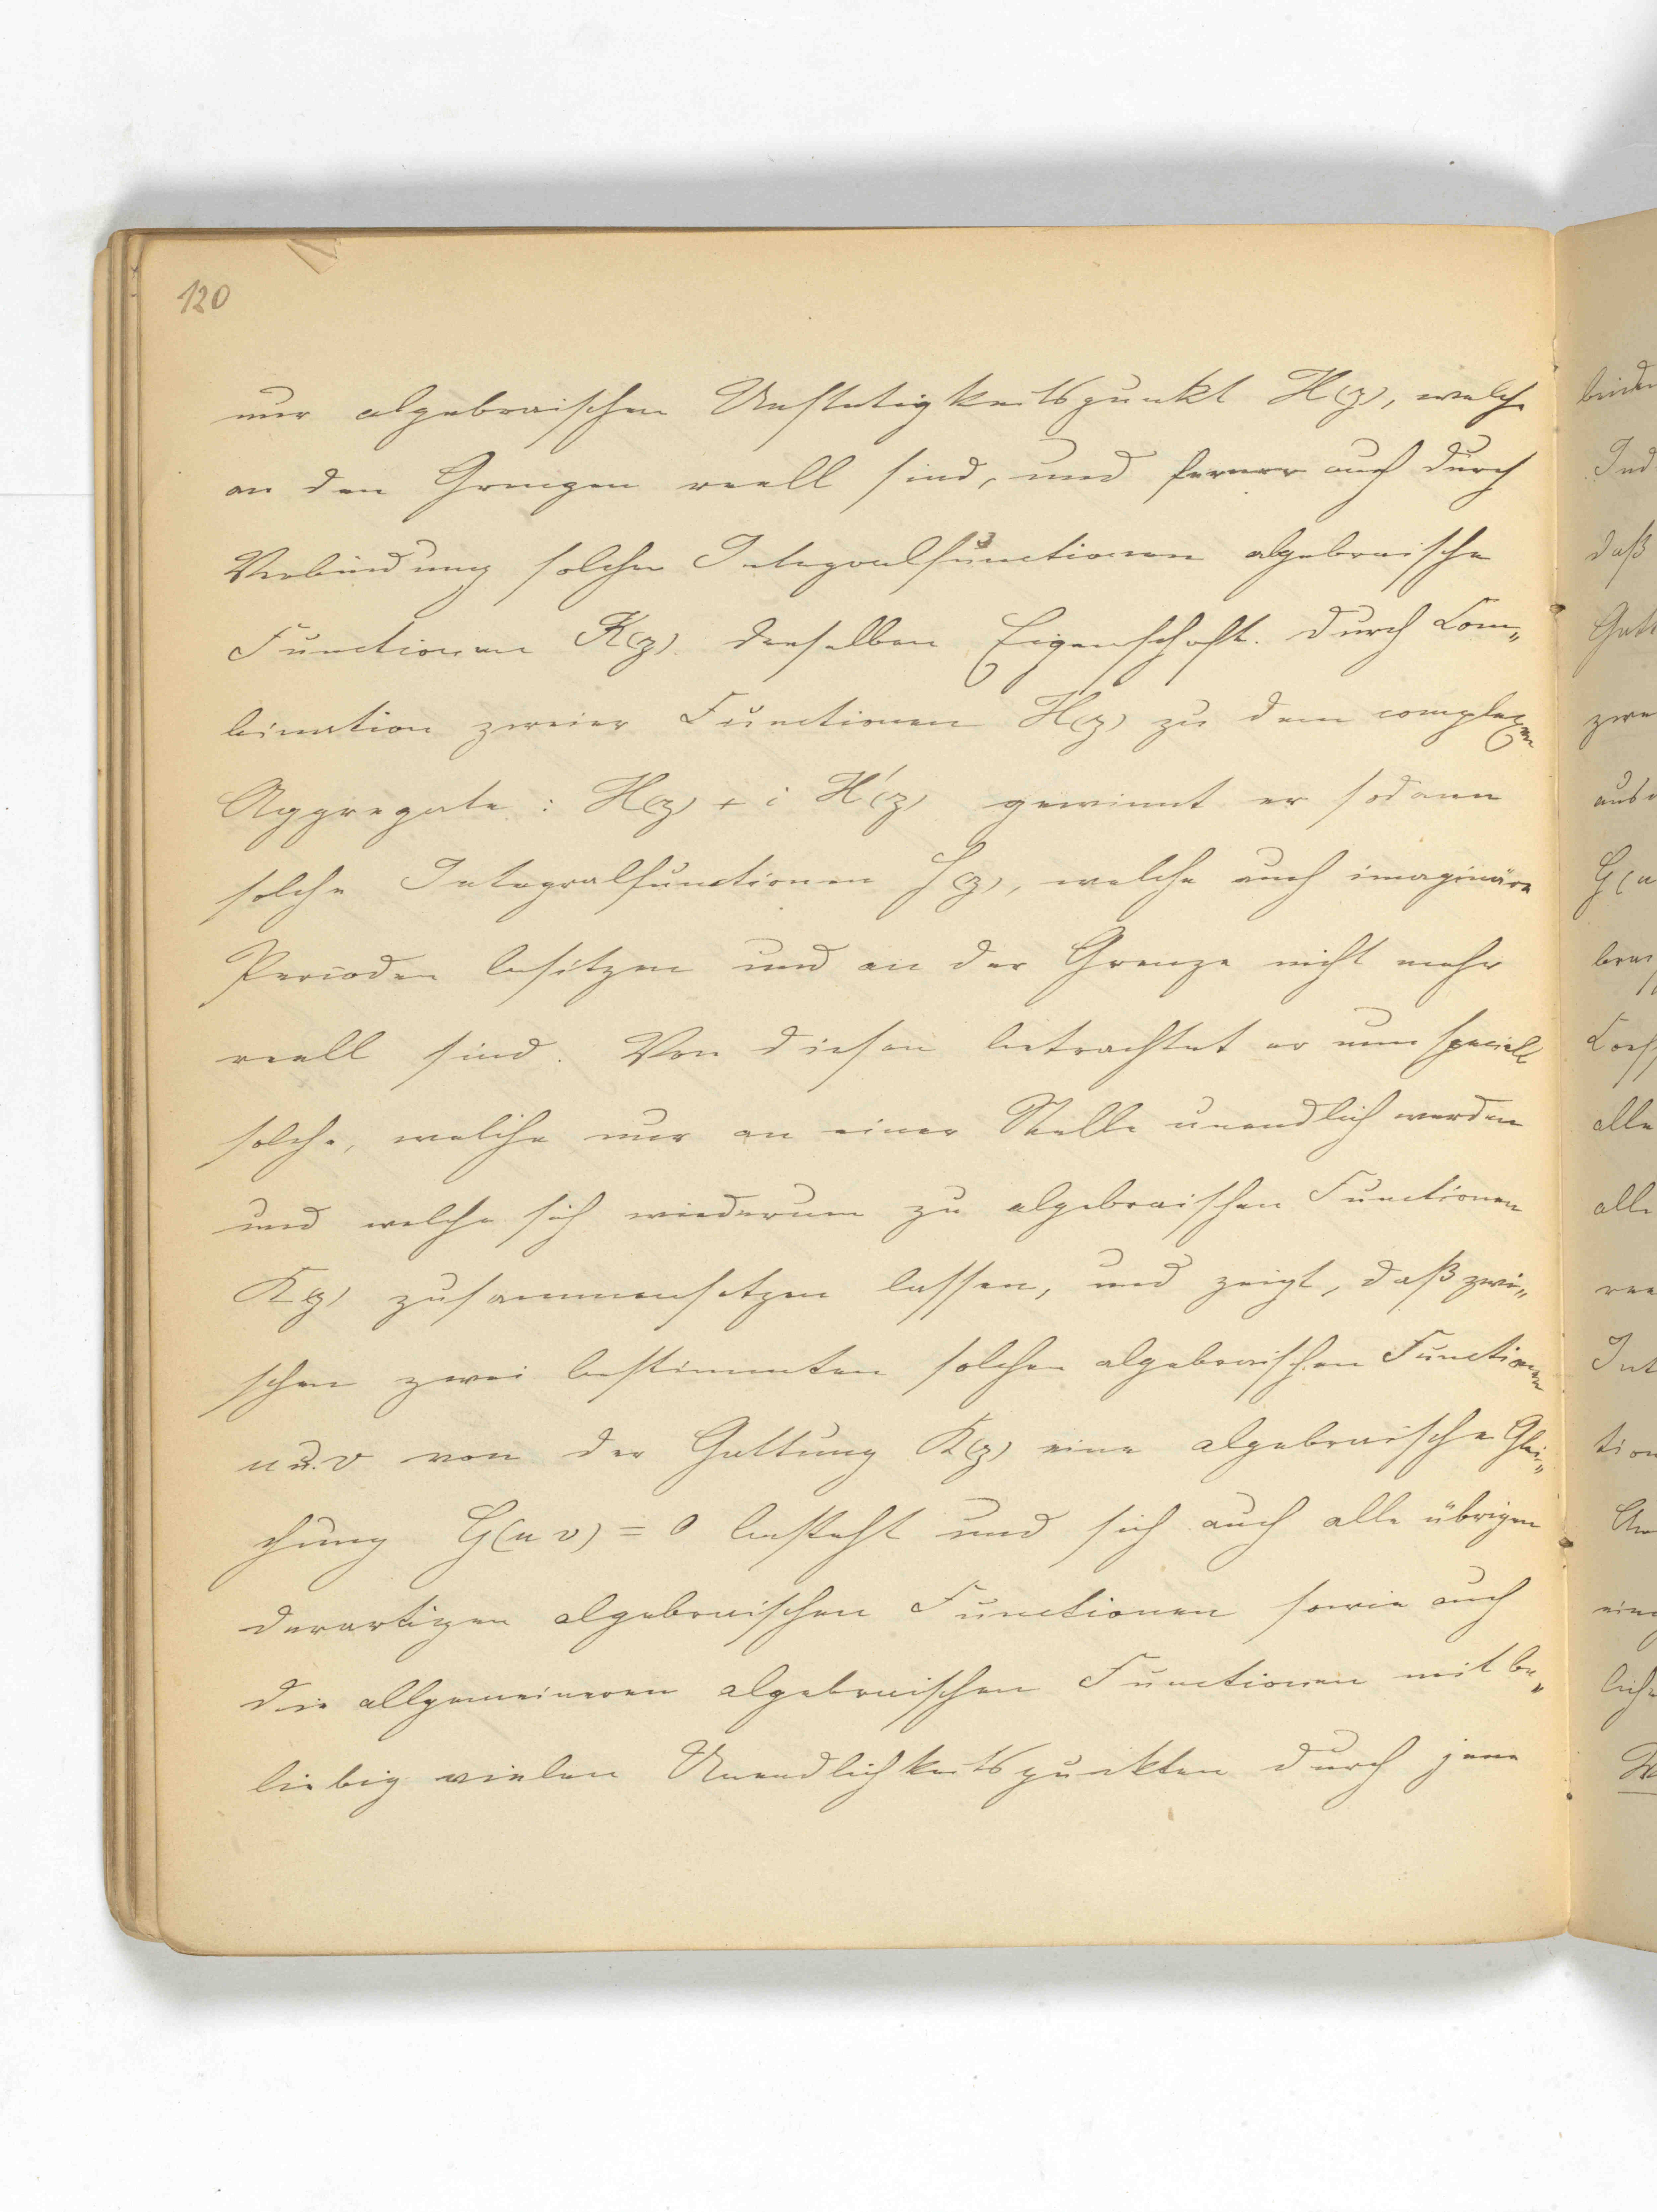 120
nur algebraischen Unstetigkeitspunkt H(z), welche
an den Grenzen reell sind, und ferner auch durch
Verbindung solcher Integralfunctionen algebraische
Functionen K(z) derselben Eigenschaft. Durch Com„
bination zweier Functionen H(z) zu dem complexen
Aggregate: H(z) + i H'(z) gewinnt er sodann
solche Integralfunctionen J(z), welche auch imaginäre
Perioden besitzen und an der Grenze nicht mehr
reell sind. Von diesen betrachtet er nun speciell
solche, welche nur an einer Stelle unendlich werden
und welche sich wiederum zu algebraischen Functionen
K(z) zusammensetzen lassen, und zeigt, daß zwi„
schen zwei bestimmten solchen algebraischen Functionen
u u. v von der Gattung K(z) eine algebraische Glei„
chung G(u v) = 0 besteht und sich auch alle übrigen
derartigen algebraischen Functionen sowie auch
die allgemeineren algebraischen Functionen mit be„
liebig vielen Unendlichkeitspunkten durch jene
daß
alle